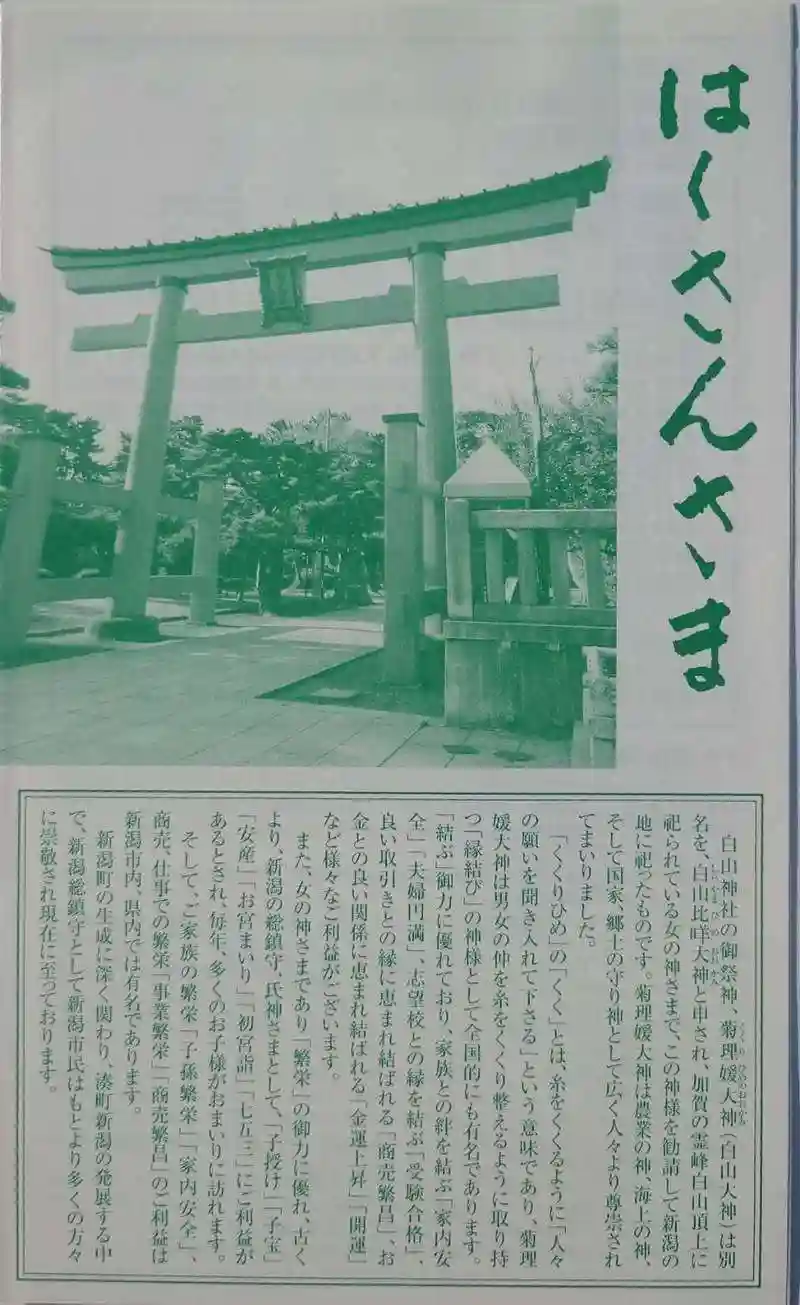 はくさんさま
白山神社の御祭神、菊理媛大神（白山大神）は別
名を、白山比咩大神と申され、加賀の霊峰白山頂上に
祀られている女の神さまで、この神様を勧請して新潟の
地に祀ったものです。菊理媛大神は農業の神、海上の神、
そして国家、郷土の守り神として広く人々より尊崇され
てまいりました。
「くくりひめ」の「くく」とは、糸をくくるように「人々
の願いを聞き入れて下さる」という意味であり、菊理
媛大神は男女の仲を糸をくくり整えるように取り持
つ「縁結び」の神様として全国的にも有名であります。
「結ぶ」御力に優れており、家族との絆を結ぶ「家内安
全」「夫婦円満」、志望校との縁を結ぶ「受験合格」、
良い取引きとの縁に恵まれ結ばれる「商売繁昌」、お
金との良い関係に恵まれ結ばれる「金運上昇」「開運」
など様々なご利益がございます。
また、女の神さまであり「繁栄」の御力に優れ、古く
より、新潟の総鎮守、氏神さまとして、「子授け」「子宝」
「安産」「お宮まいり」「初宮詣」「七五三」にご利益が
あるとされ、毎年、多くのお子様がおまいりに訪れます。
そして、ご家族の繁栄「子孫繁栄」「家内安全」、
商売、仕事での繁栄「事業繁栄」「商売繁昌」のご利益は
新潟市内、県内では有名であります。
新潟町の生成に深く関わり、湊町新潟の発展する中
で、新潟総鎮守として新潟市民はもとより多くの方々
に崇敬され現在に至っております。